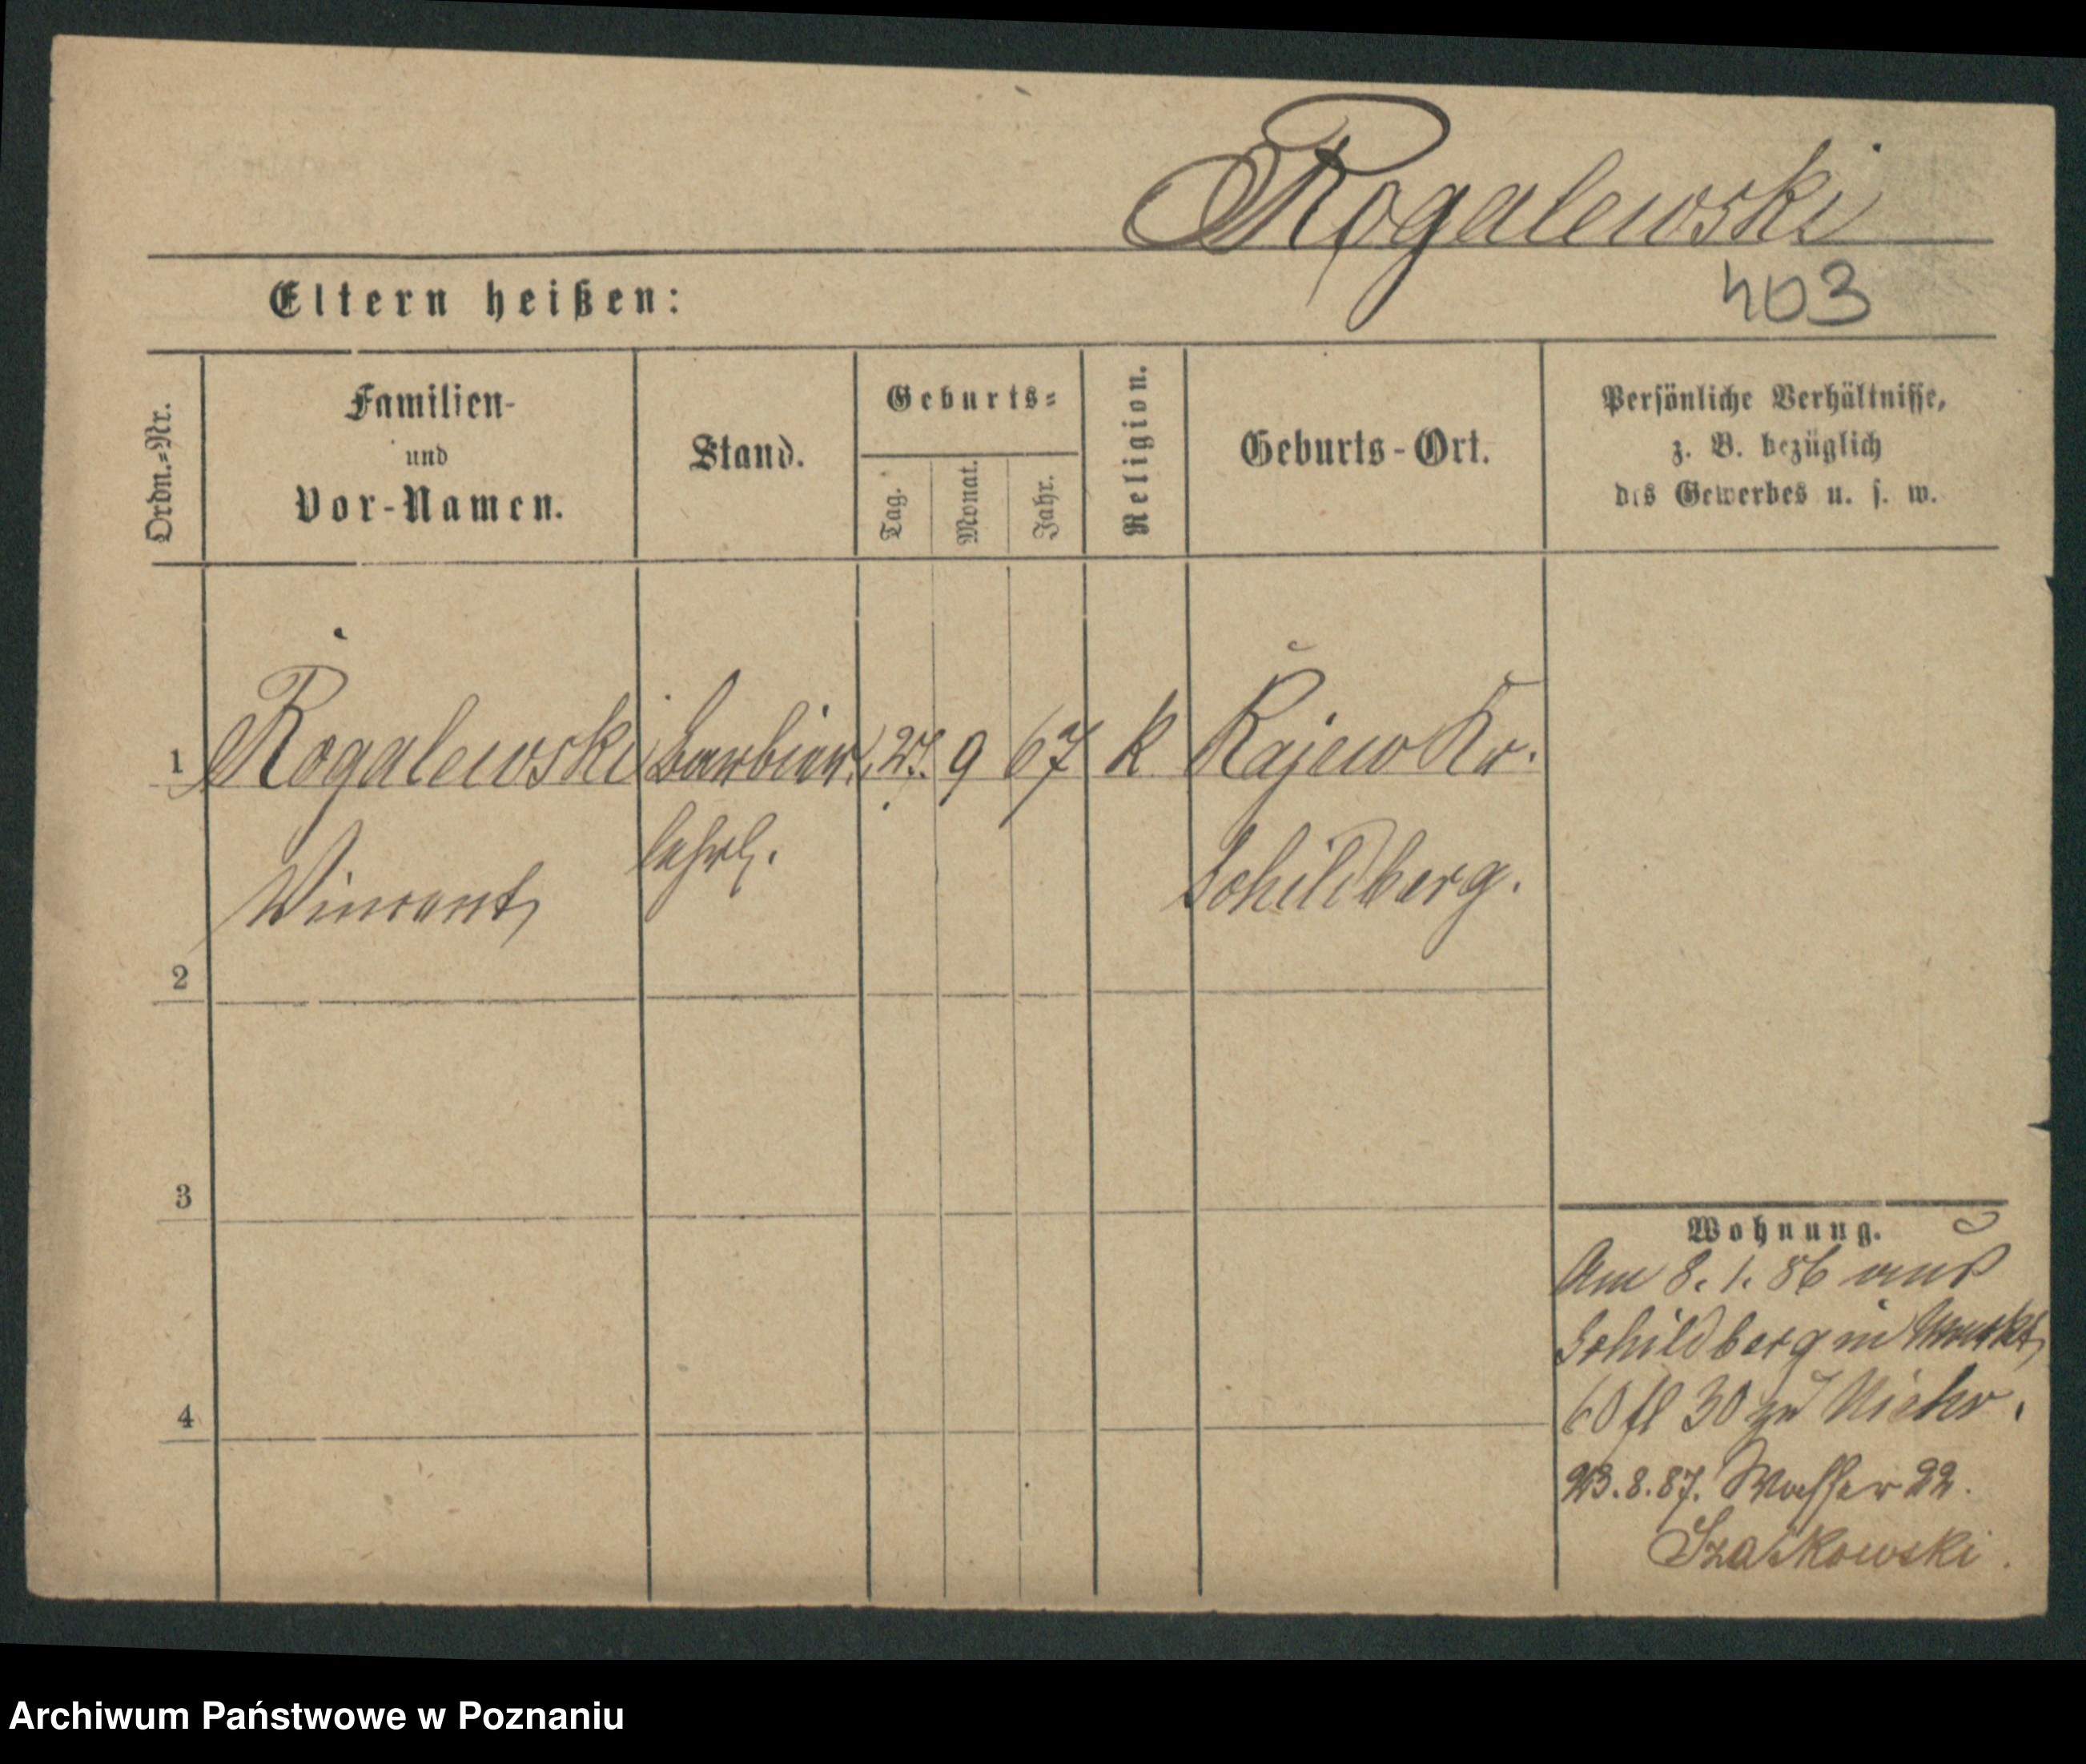 Rogalewski
403
Eltern heißen:
Ordn.=Nr.
Familien-
und
Vor-Namen.
Stand.
Geburts=
Tag.
Monat.
Jahr.
Religion.
Geburts-Ort.
Persönliche Verhältnisse,
z. B. bezüglich
des Gewerbes u. s. w.
1 Rogalewski Barbier 27. 9 67 k Kajew Kr.
Vincent lehrl. Schildberg.
2
3
4
Wohnung.
Am 8. 1. 86 aus
Schildberg in
60 30 zu
23.8.87. Wasser 22.
Szatkowski.
Archiwum Państwowe w Poznaniu